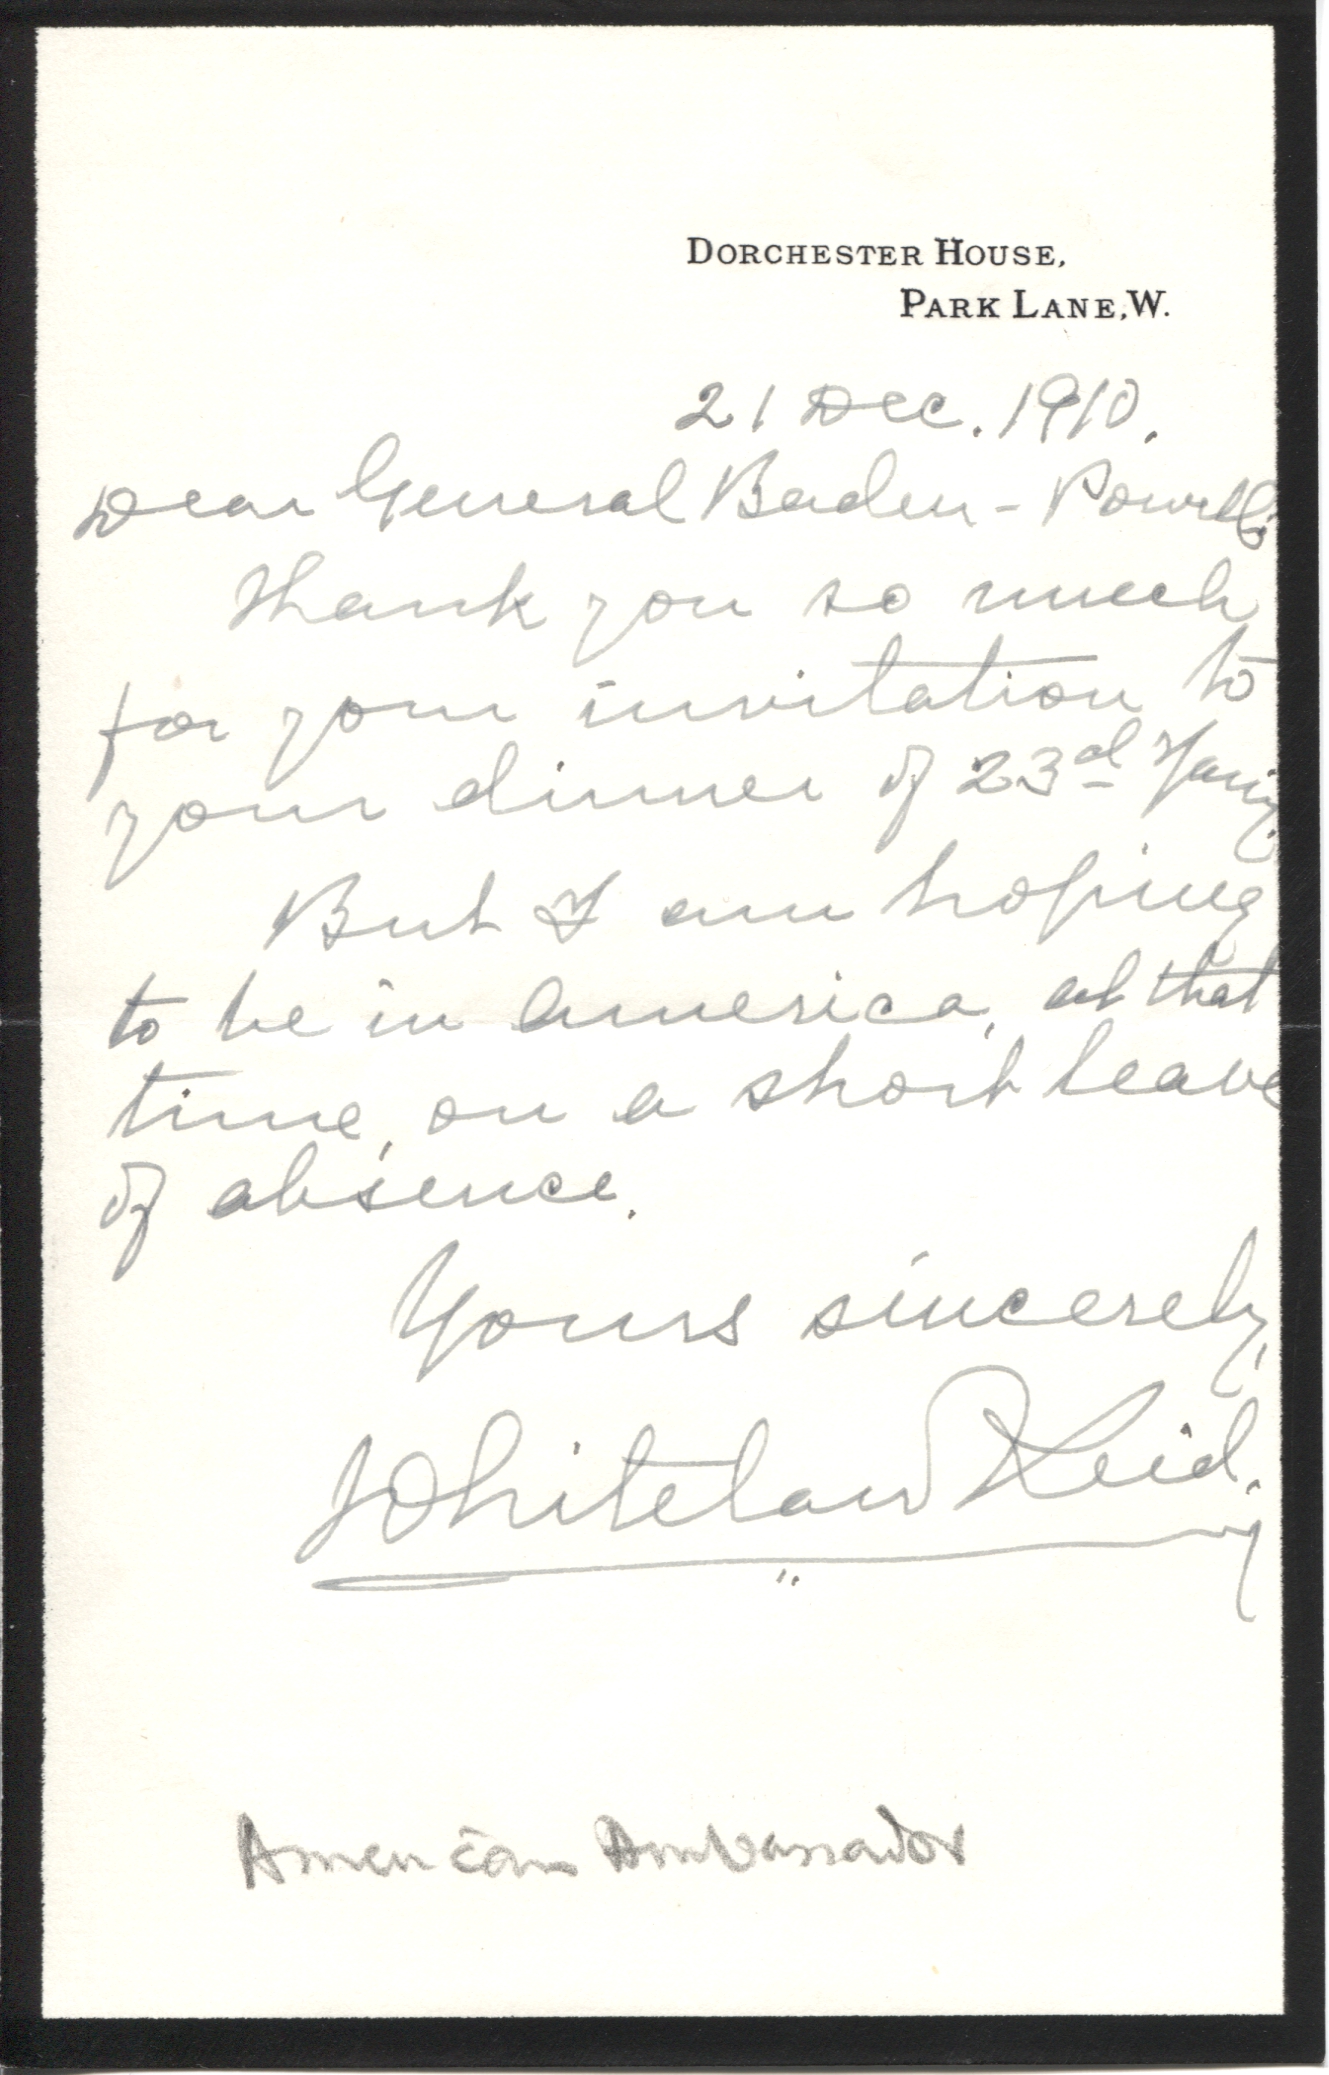 Dorchester House,
Park Lane, W.
21 Dec. 1910.
Dear General Baden-Powell,
Thank you so much
for your invitation to
your dinner of 23d Jan'y.
But I am hoping
to be in America, at that
time, on a short leave
of absence.
Yours sincerely,
Whitelaw Reid.
American Ambassador